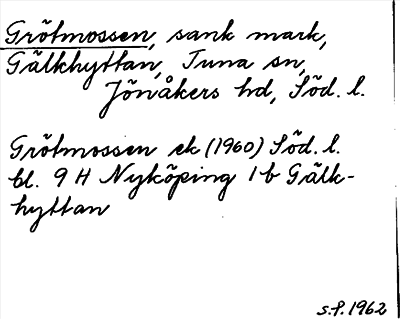 Grötmossen, sank mark,
Gälkhyttan, Tuna sn,
Jönåkers hd, Söd. l.
Grötmossen ek (1960) Söd. l.
bl. 9 H Nyköping 1 b Gälk-
hyttan
s.f. 1962